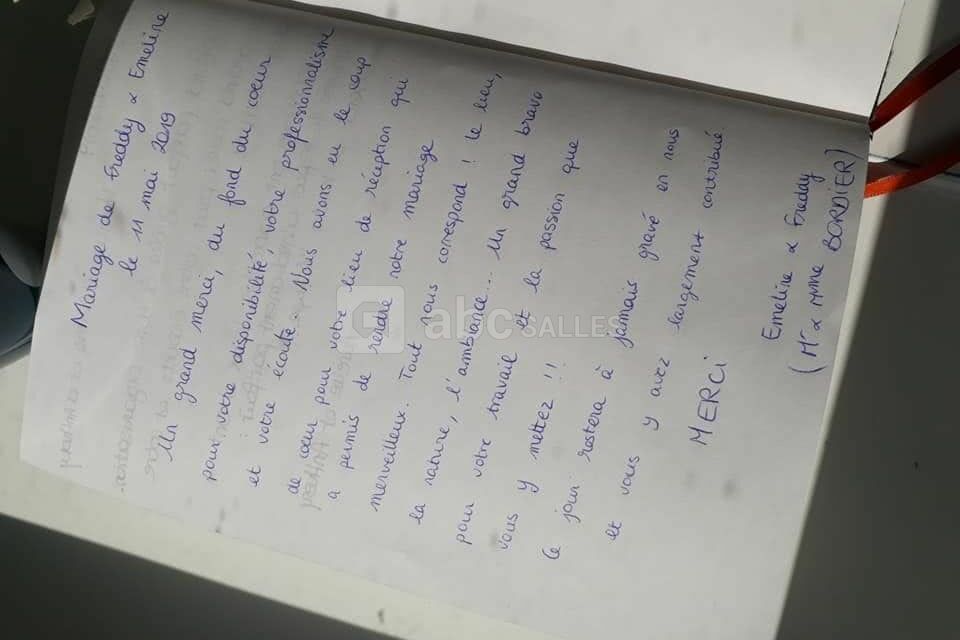 Mariage de Freddy & Emeline
le 11 mai 2019
Un grand merci, du fond du coeur
pour votre disponibilité, votre professionnalisme
et votre écoute. Nous avons eu le coup
de coeur pour votre lieu de réception qui
a permis de rendre notre mariage
merveilleux. Tout nous correspond ! Le lieu,
la nature, l'ambiance... Un grand bravo
pour votre travail et la passion que
vous y mettez !!
Ce jour restera à jamais gravé en nous
et vous y avez largement contribué
MERCI
Emeline & Freddy
(Mr & Mme BORDIER)
abc SALLES